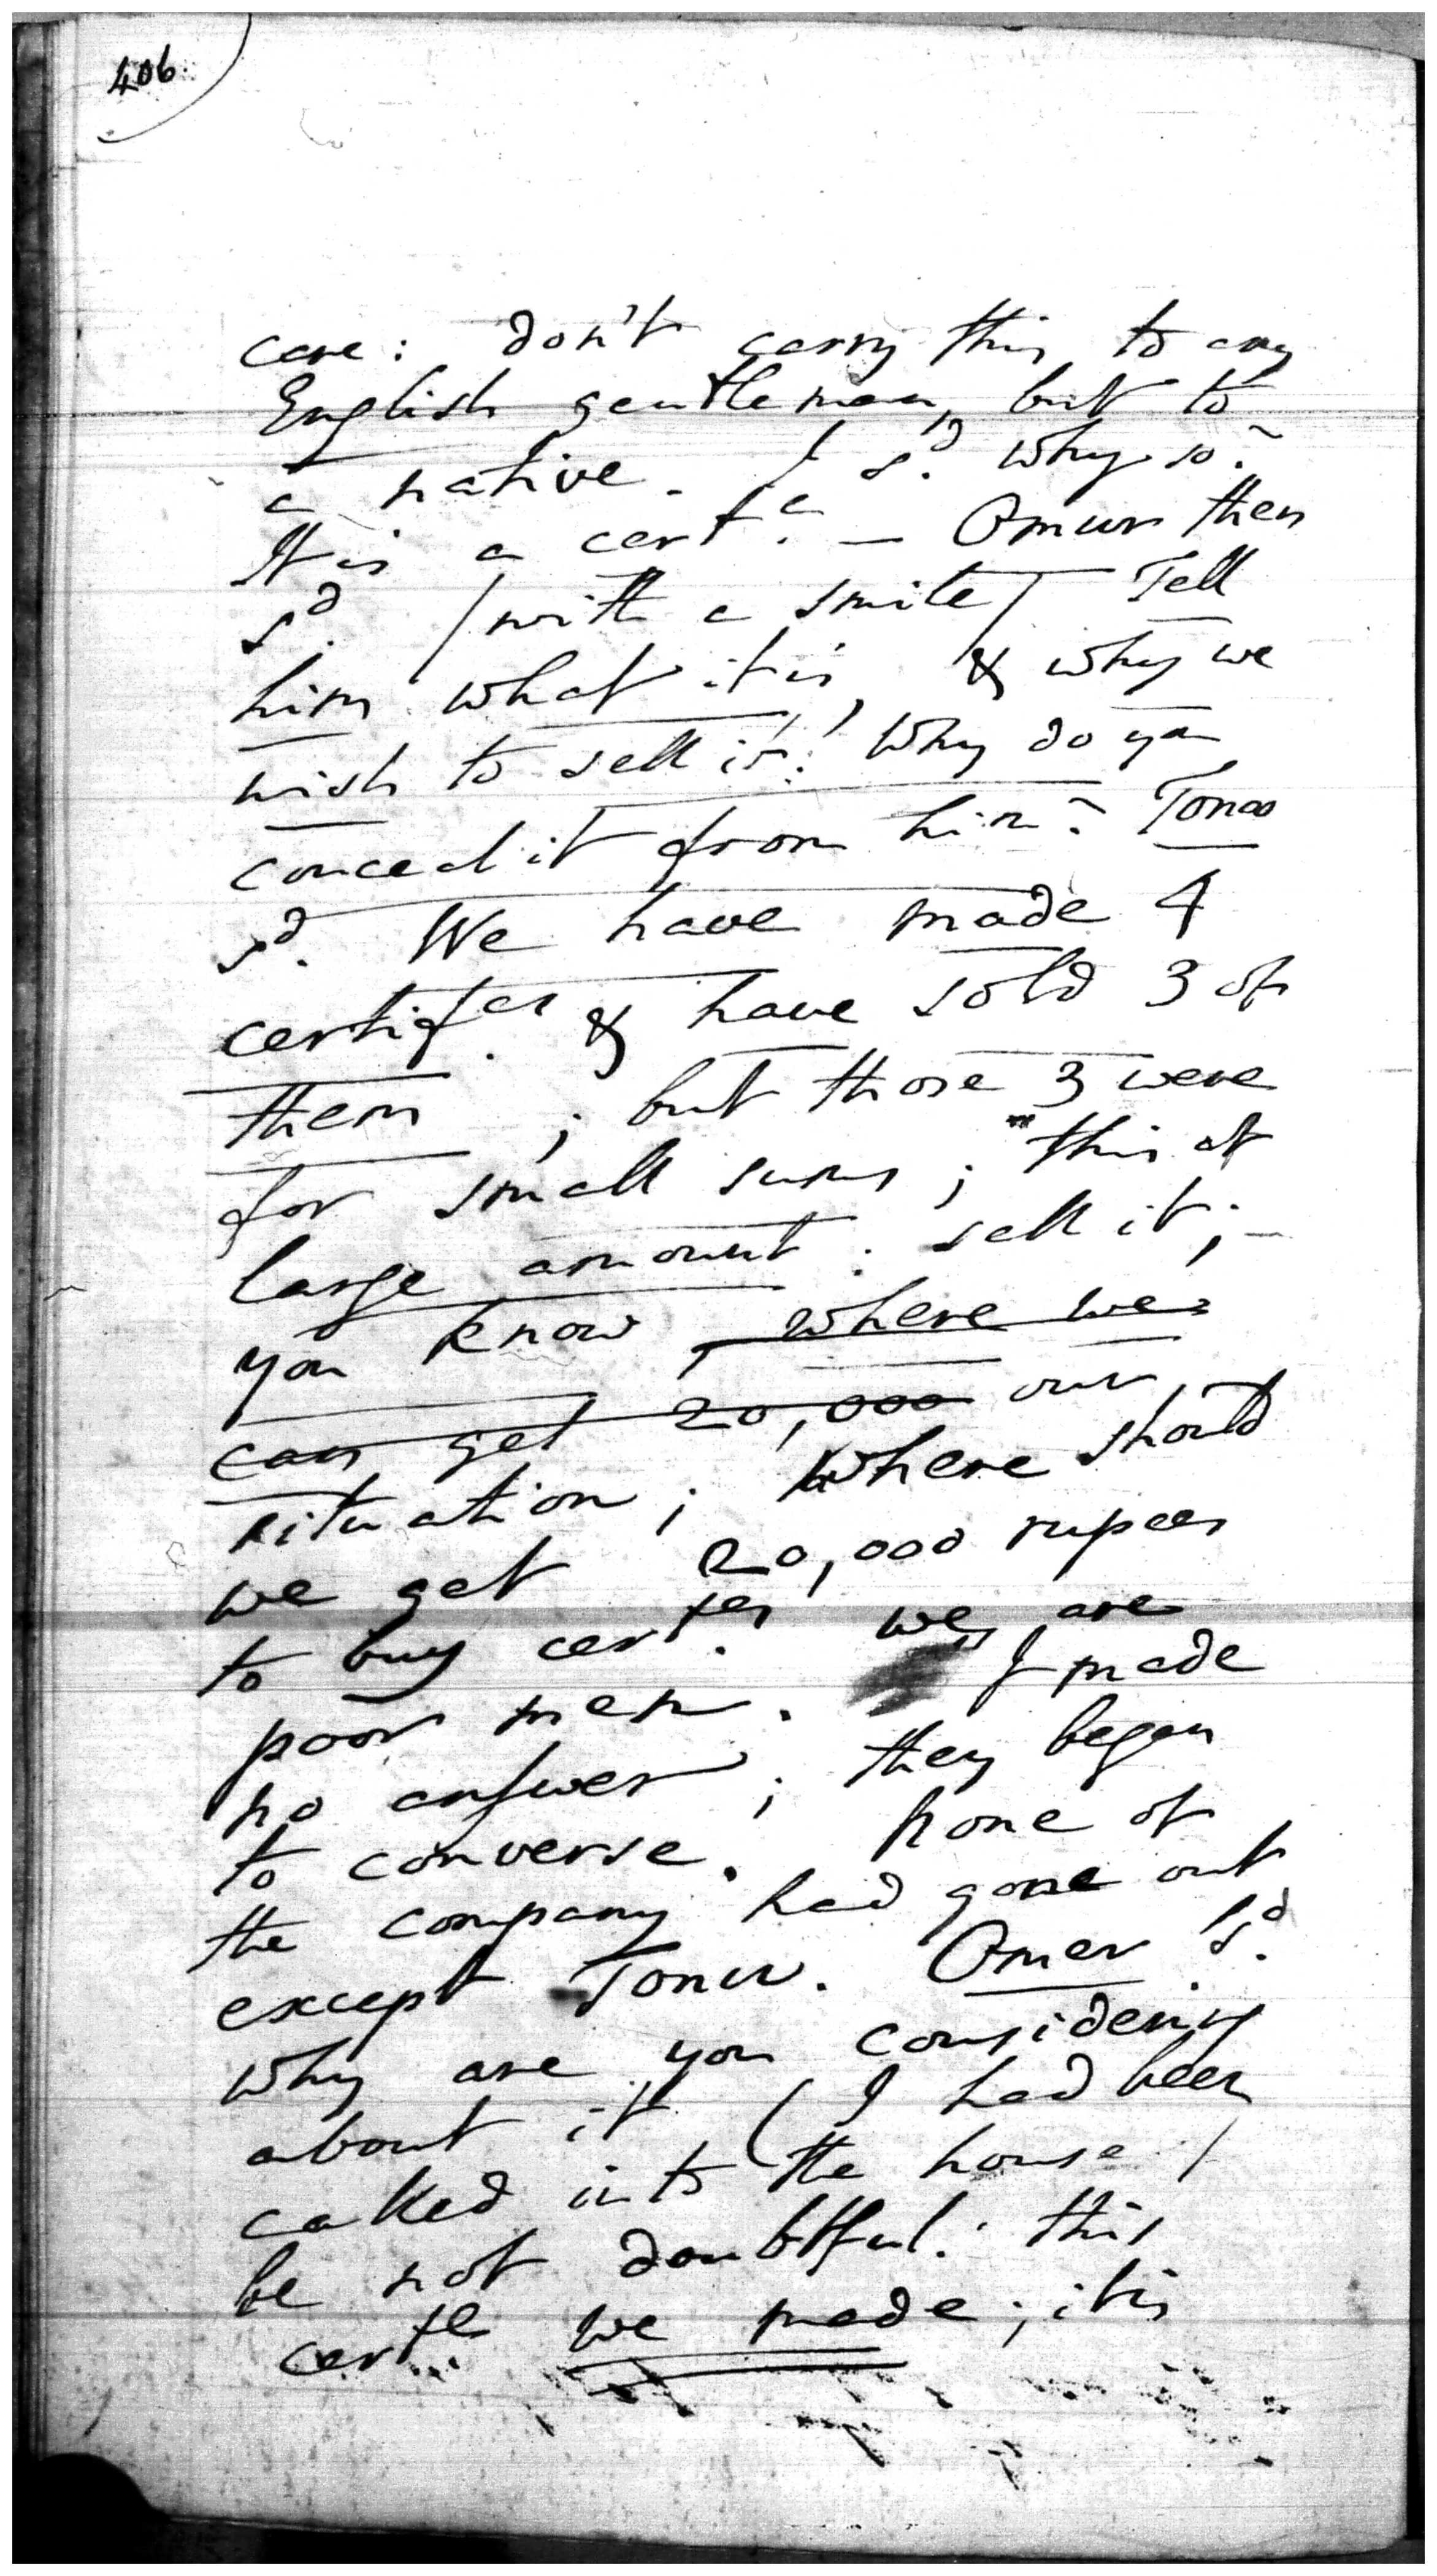 406.
care: don't carry this to any
English gentleman, but to
a native. I sd. why so?
It is a certe. — Omur then
sd. (with a smile) Tell
him what it is, & why we
wish to sell it! Why do you
conceal it from him? Tonoo
sd. We have made 4
certifes. & have sold 3 of
them ; but those 3 were
for small sums; this of
large amount : sell it; –
you know , where we
can get 20,000 our
situation ; Where should
we get 20,000 rupees
to buy certes. we are
poor men. I made
no answer ; they began
to converse. none of
the company had gone out
except Tonu. Omer sd.
why are you considering
about it (I had been
called into the house)
be not doubtful: this
certe. we made ; it is